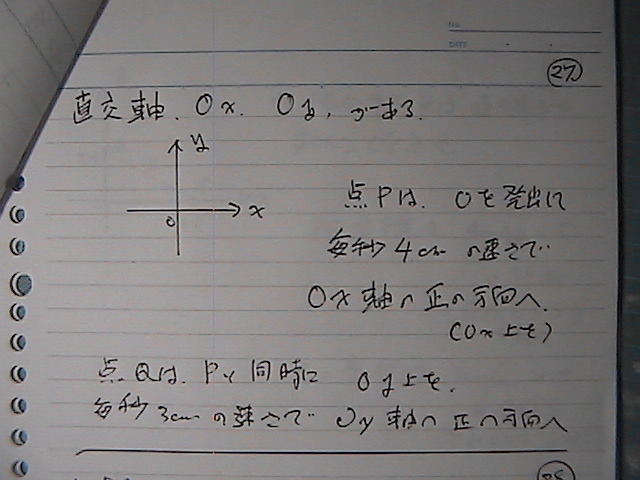 NO.
DATE
27
直交軸、Ox、Oy、がある。
y
x
O
点Pは、Oを発出に
毎秒4cmの速さで
Ox軸の正の方向へ
(Ox上を)
点Qは、Pと同時に Oy上を、
毎秒3cmの速さで Oy軸の正の方向へ